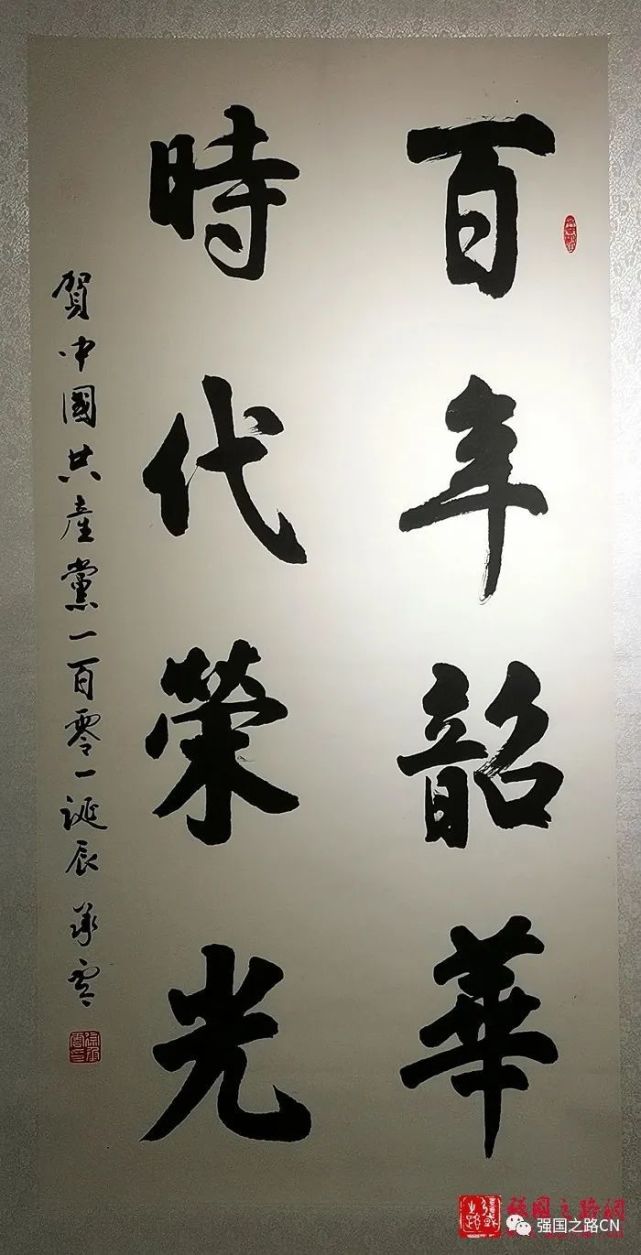 百年韶華
時代榮光
賀中國共產黨一百零一誕辰 承雲
强国之路CN